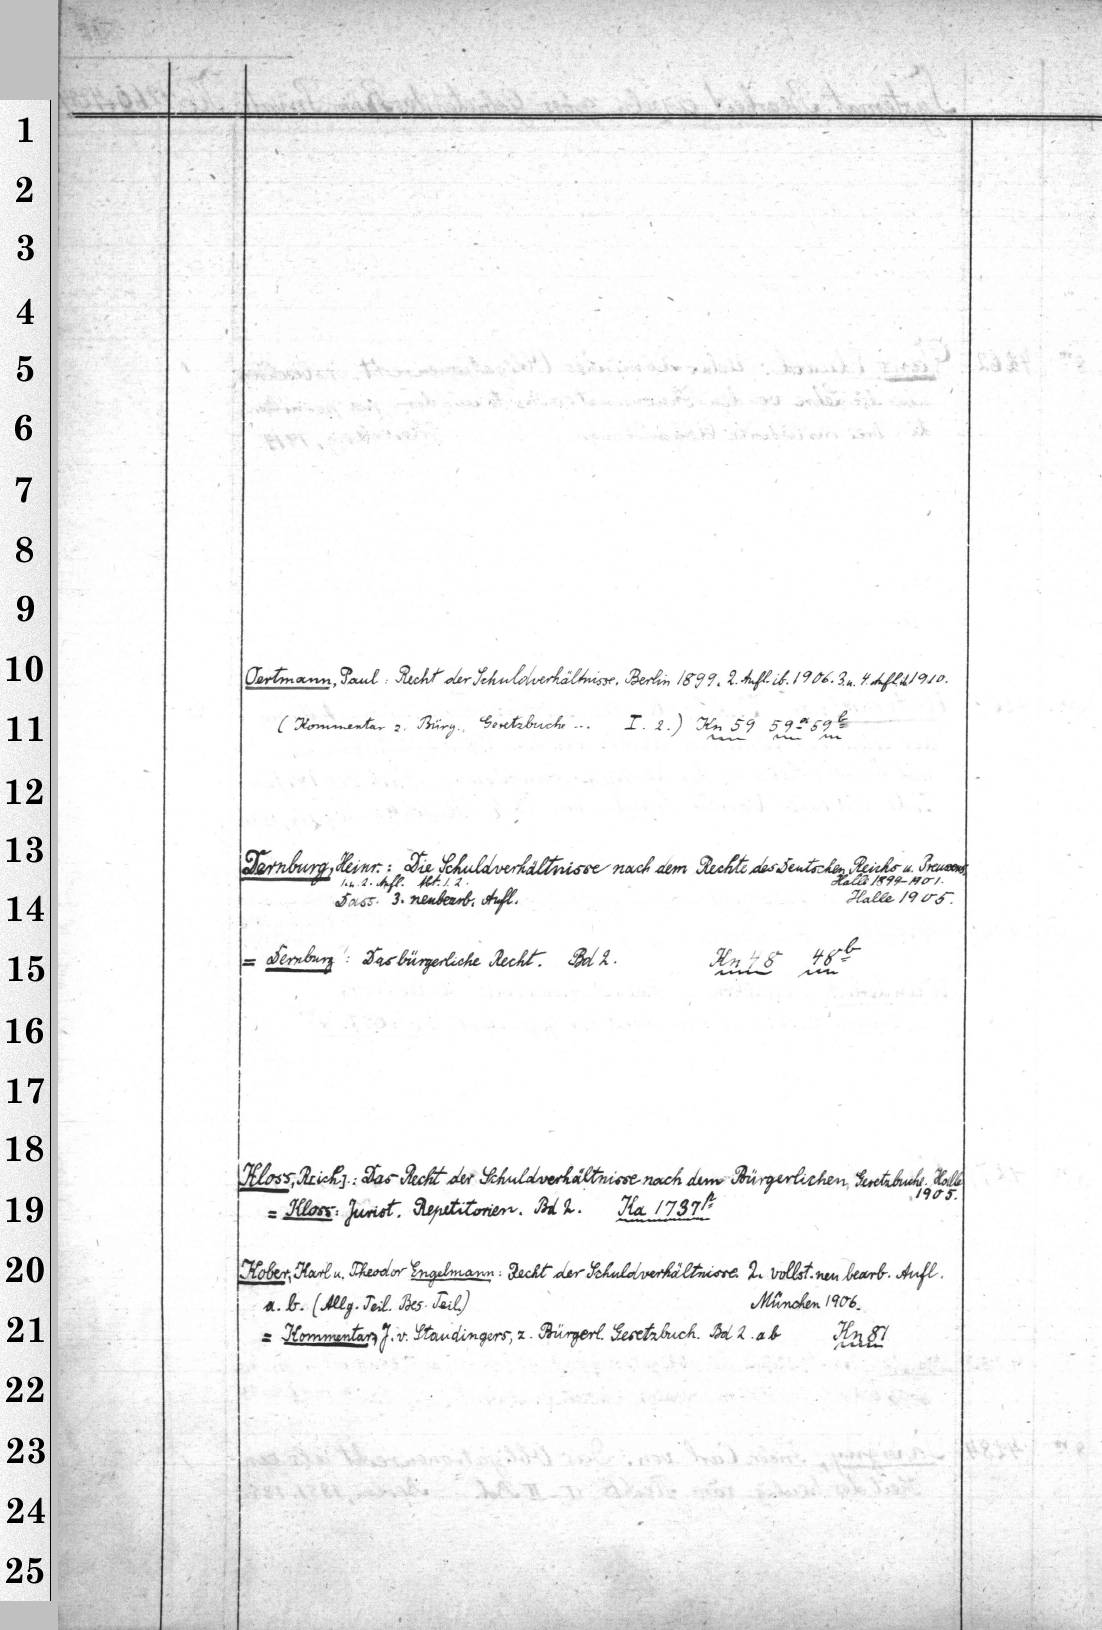 1
2
3
4
5
6
7
8
9
10
Oertmann, Paul: Recht der Schuldverhältnisse. Berlin 1899. 2. Aufl. ib. 1906. 3. u. 4. Aufl. ib 1910.
11
(Kommentar z. Bürg. Gesetzbuche ... I. 2.) Kn 59 59a 59b
12
13
Dernburg, Heinr.: Die Schuldverhältnisse nach dem Rechte des Deutschen Reichs u. Preussens
1. u. 2. Aufl. Abt. 1. 2. Halle 1899-1901.
14
Dass. 3. neubearb. Aufl. Halle 1905.
15
= Dernburg: Das bürgerliche Recht. Bd 2. Kn 48 48b
16
17
18
Kloss, Reich.: Das Recht der Schuldverhältnisse nach dem Bürgerlichen Gesetzbuche. Halle
1905.
19
= Kloss: Jurist. Repetitorien. Bd 2. Ka 1737
20
Kober, Karl u. Theodor Engelmann: Recht der Schuldverhältnisse. 2. vollst. neu bearb. Aufl.
a. b. (Allg. Teil. Bes. Teil.) München 1906.
21
= Kommentar, J. v. Staudingers, z. Bürgerl. Gesetzbuch. Bd 2. a b Kn 87
22
23
24
25